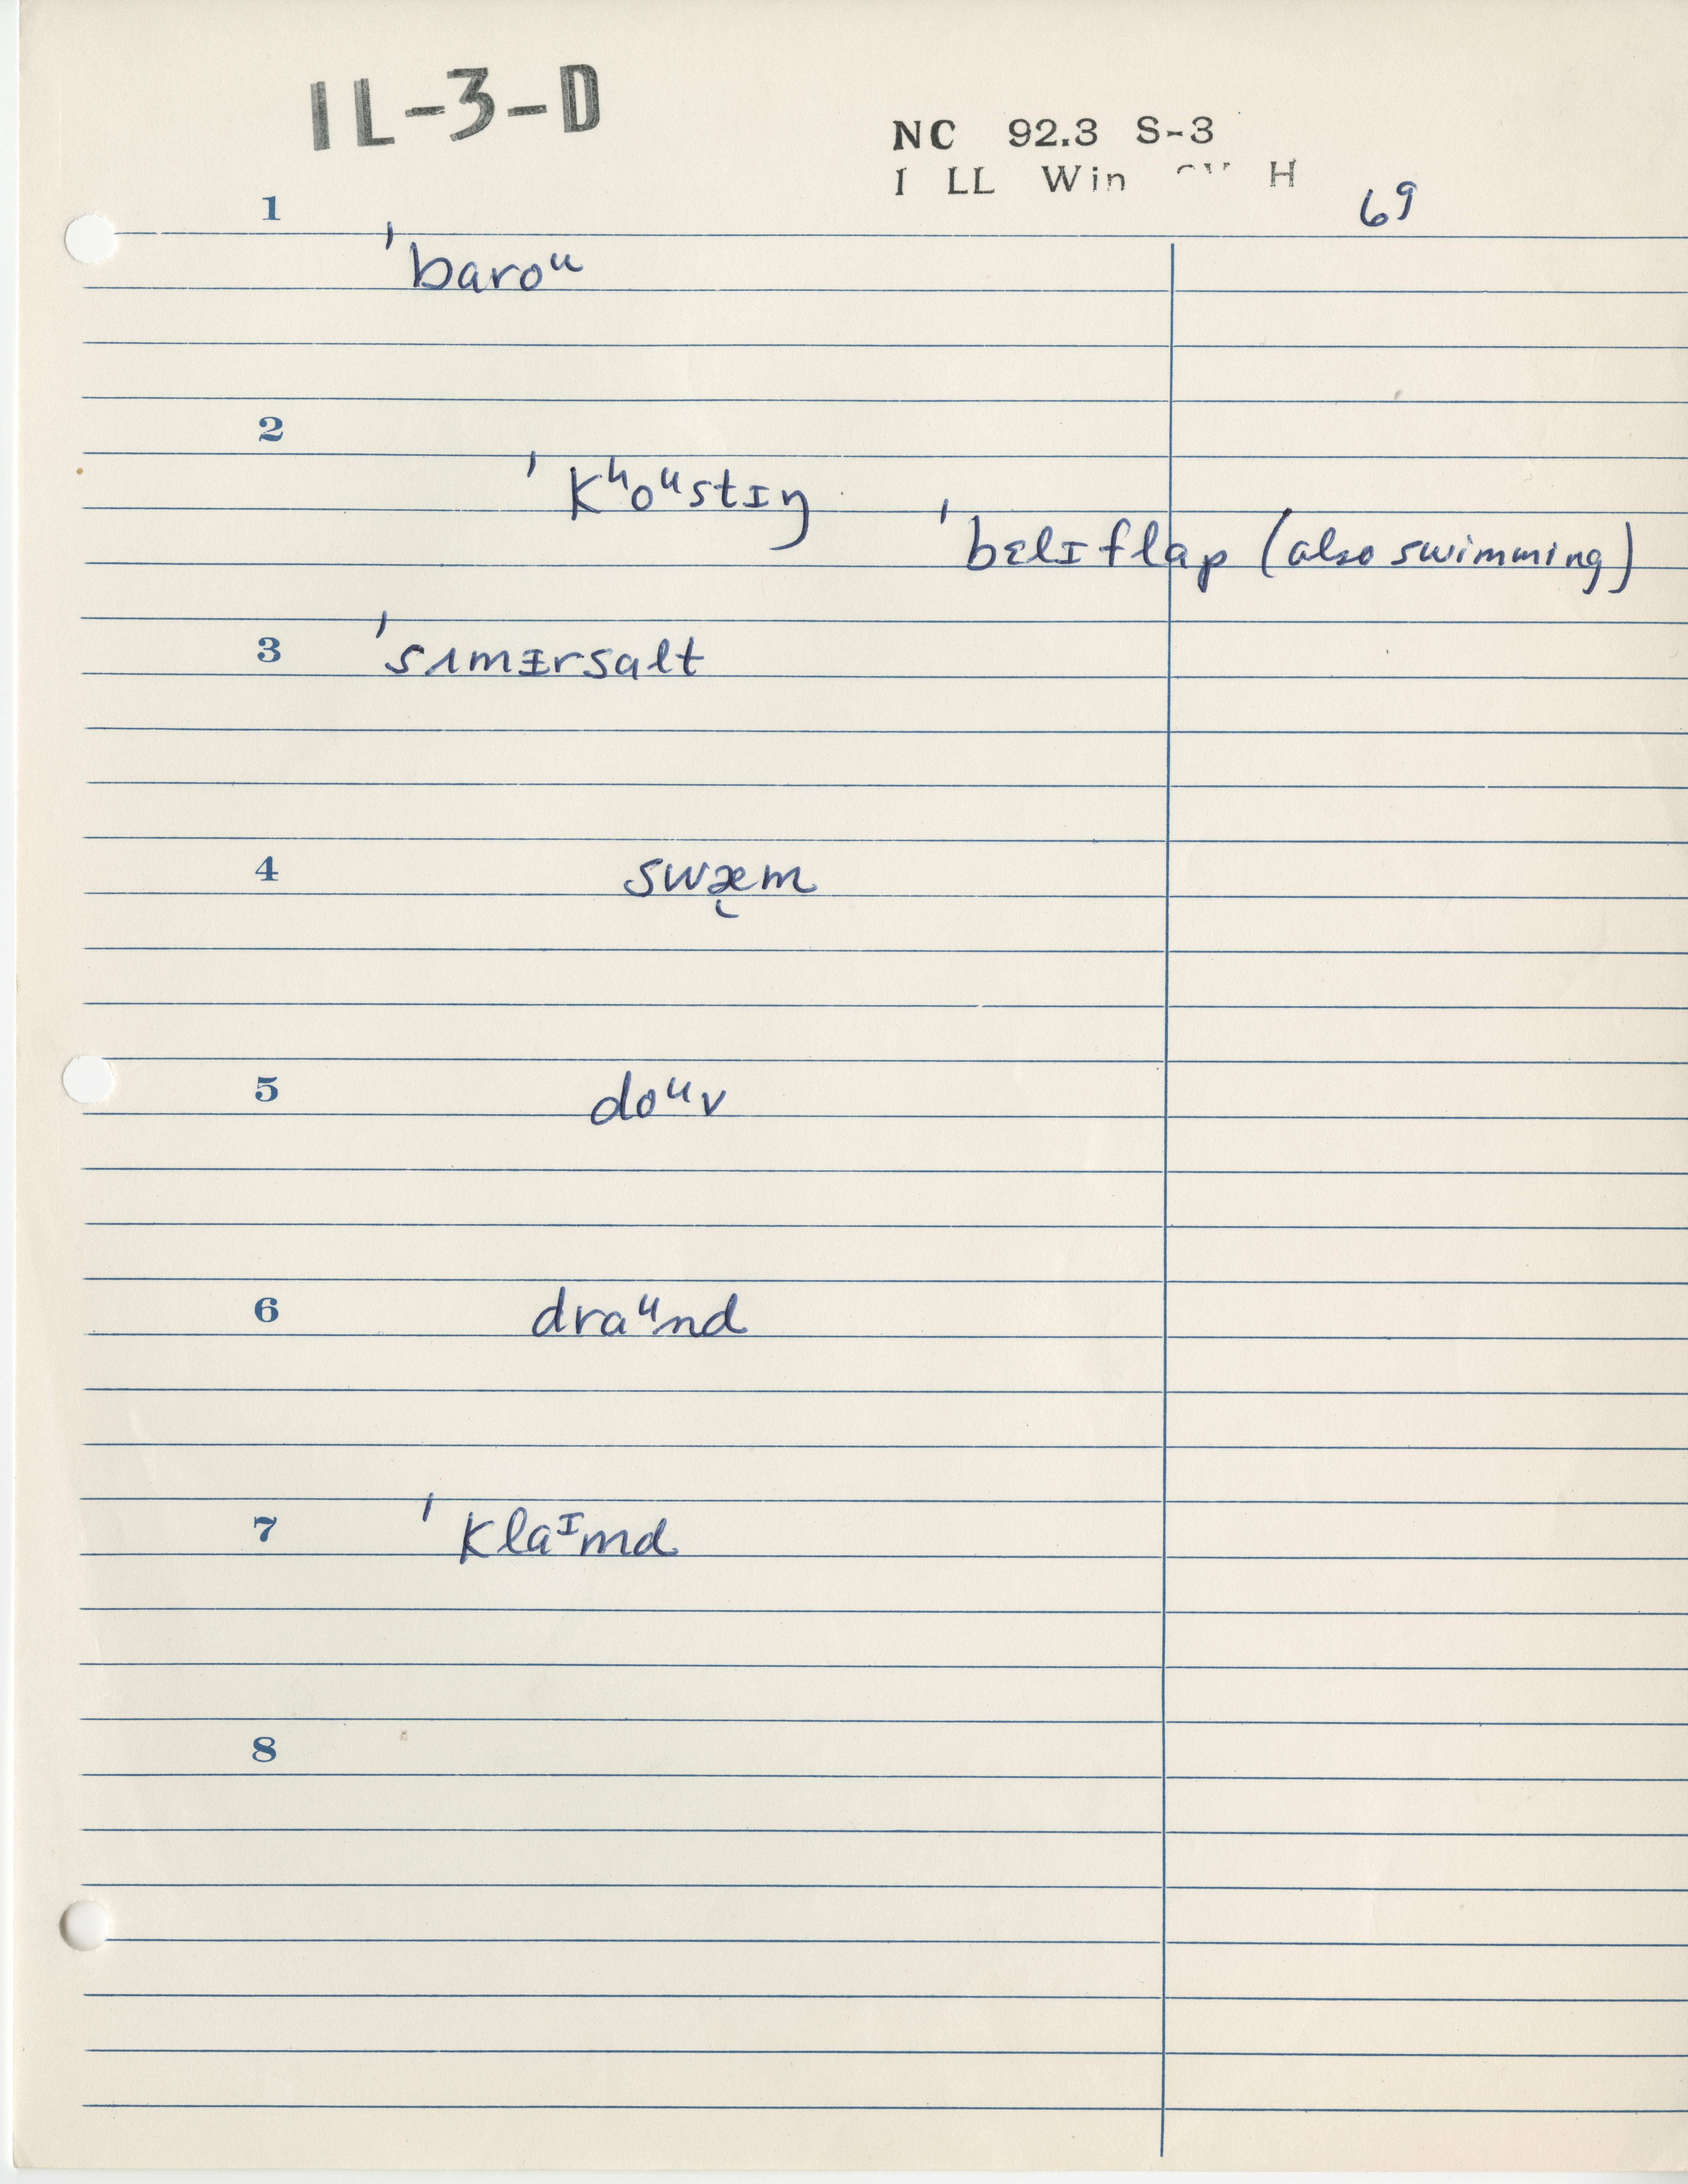 IL-3-D
NC 92.3 S-3
I LL Win H
69
1
ˈbaroᵘ
2
ˈkʰoᵘstɪŋ ˈbɛlɪflap (also swimming)
3 ˈsʌmɪrsalt
4 swæ̨m
5 doᵘv
6 draᵘnd
7 ˈklaᶦmd
8